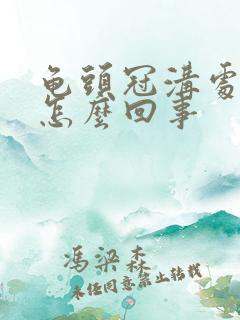 龟頭冠溝處
怎麽回事
馮梁森
未任同意禁止转载